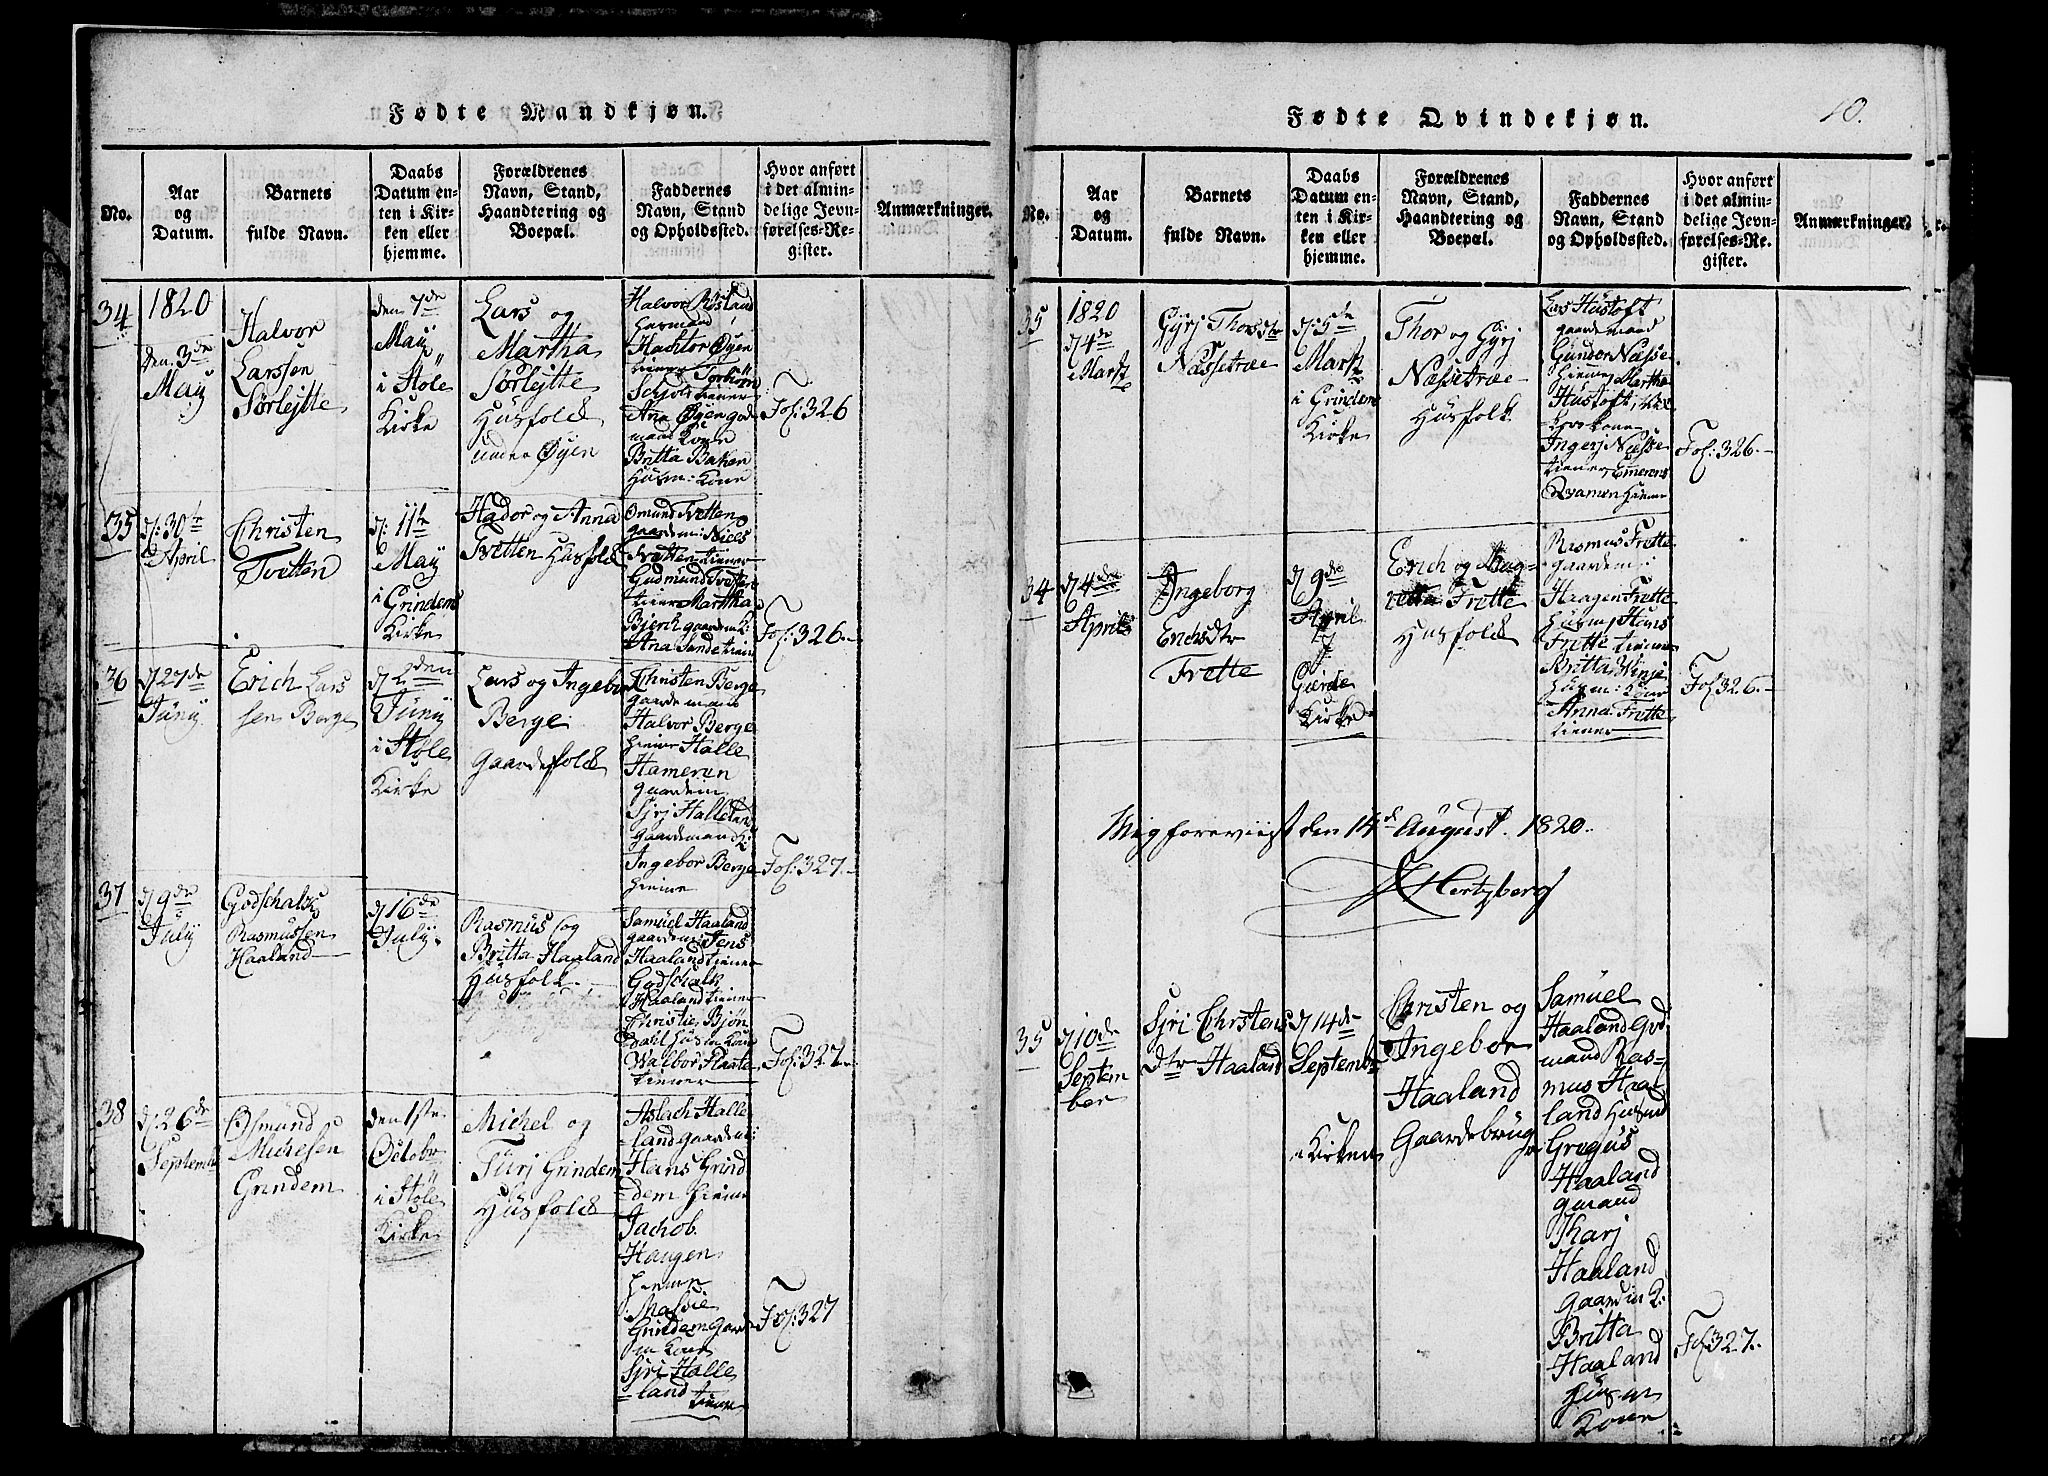 Fødte Mandkjøn.
No.
Aar
og
Datum.
Barnets
fulde Navn.
Daabs
Datum en-
ten i Kir-
ken eller
hjemme.
Forældrenes
Navn, Stand,
Haandtering og
Boepæl.
Faddernes
Navn, Stand
og Opholdssted.
Hvor anført
i det almin-
delige Jevn-
førelses-Re-
gister.
Anmærkninger.
34
1820
den 3de
May
Halvor
Larssen
Sørlejtte
den 7de
May
i Støle
Kirke
Lars og
Martha
Sørlejtte
Husfolk
under Øyen
Halvor Røsland
Haldor Øyen
tiener Torbiørn
tiener
Ana Øyen
Kone
Britta Baken
Husm: Kone
Fol: 326
35
d: 30te
April
Christen
Tvetten
d: 11te
May
i Grindem
Kirke
Hador og Anna
Tvetten Husfolk
Omund Tvetten
gaardm: Niels
Tvetten tiener
Gudmund Tvetten
tiener Martha
Bjerch gaardm K:
Ana Sande tiener
Fol: 326
36
d 27de
Juny
Erich Lars
sen Berge
d 2den
Juny
i Støle
Kirke
Lars og Ingebor
Berge
Gaardefolk
Christen Berge
gaardemand
Halvor Berge
hieme Halle
Hameran
gaardm
Sjrj Halleland
gaardmand K:
Ingebor Berge
hieme
Fol: 327
37
d 9de
July
Godschalk
Rasmussen
Haaland
d 16de
July
Rasmus og
Britta Haaland
Husfolk
Samuel Haaland
gaardm: Jens
Haaland tiener
Godschalk
Haaland tiener
Christie Bjøn
Dahl Husm Kone
Walbor Flaate
tiener
Fol: 327
38
d: 26de
September
Osmund
Michelsen
Grindem
den 1ste
October
i Støle
Kirke
Michel og
Turj Grindem
Husfolk
Aslach Halle
land gaardm:
Hans Grind
dem hieme
Jachob
Haugen
hieme
Malvie
Grindem Gaard
m Kone
Sjri Halle
land tiener
Fol: 327
Fødte Qvindekjøn.
10.
No.
Aar
og
Datum.
Barnets
fulde Navn.
Daabs
Datum en-
ten i Kir-
ken eller
hjemme.
Forældrenes
Navn, Stand,
Haandtering og
Boepæl.
Faddernes
Navn, Stand
og Opholdssted.
Hvor anført
i det almin-
delige Jevn-
førelses-Re-
gister.
Anmærkninger.
35
1820
d 4de
Marts
Gyrj Thorsdtr
Næssetræe
d: 5te
Marts
i Grindem
Kirke
Thor og Gyrj
Næssetræe
Husfolk
Lars Hustoft
gaardmand
Gunder Næsse
hieme Martha
Hustoft
Kone
Ingerj Næsse
tiener
Qvamen hieme
Fol: 326
34
d 4de
April
Ingeborg
Erichsdtr
Frette
d 9de
April
i
Gierde
Kirke
Erich og Mag-
retta Frette
Husfolk
Rasmus Frette
gaardm:
Haagen Frette
Husm, Hans
Frette tiener
Britta Winje
Husm: Kone
Anna Frette
tiener
Fol: 326
Mig foreviist den 14de August 1820
Hertzberg
35
d 10de
Septem
ber
Sjri Chrstens
dtr Haaland
d 14de
September
i Kirken
Christen og
Ingebor
Haaland
Gaardebruger
Samuel
Haaland Grd
mand Ras-
mus Haa
land Husmd
Gregus
Haaland
Tharj
Haaland
Gaardm K:
Britta
Haaland
Husm
Kone
Fol 327